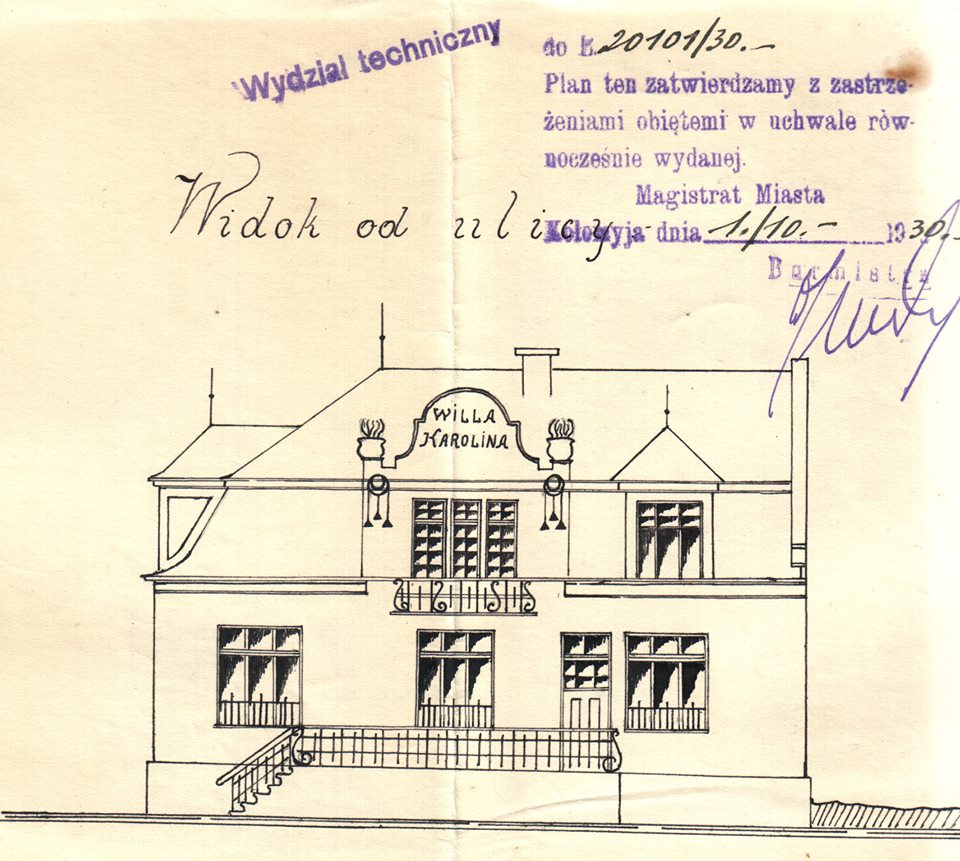 Wydział techniczny
do L. 20101/30.-
Plan ten zatwierdzamy z zastrze-
żeniami obiętemi w uchwale rów-
nocześnie wydanej.
Magistrat Miasta
Kołomyja dnia 1./10.- 1930.-
Burmistrz
Widok od ulicy-
WILLA
KAROLINA